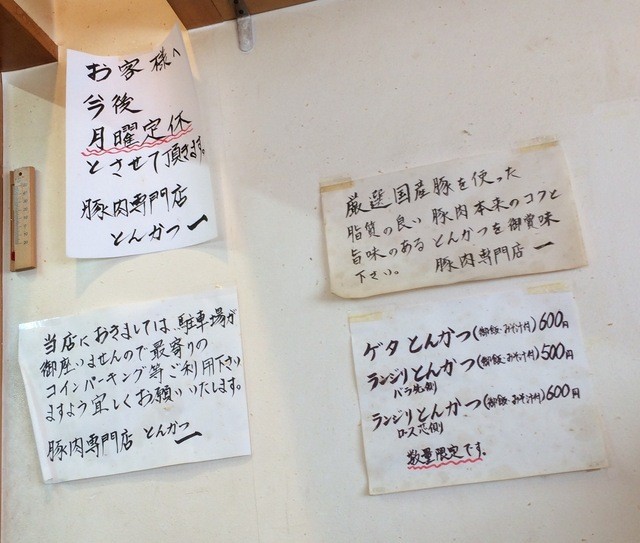 お客様へ
今後
月曜定休
とさせて頂きます。
豚肉専門店
とんかつ一
当店におきましては、駐車場が
御座いませんので最寄りの
コインパーキング等ご利用下さい
ますよう宜しくお願いいたします。
豚肉専門店 とんかつ一
厳選国産豚を使った
脂質の良い豚肉本来のコクと
旨味のあるとんかつを御賞味
下さい。 豚肉専門店 一
ゲタとんかつ(御飯・みそ汁付)600円
ランジリとんかつ(御飯・みそ汁付)500円
バラ先側
ランジリとんかつ(御飯・みそ汁付)600円
ロース芯側
数量限定です。